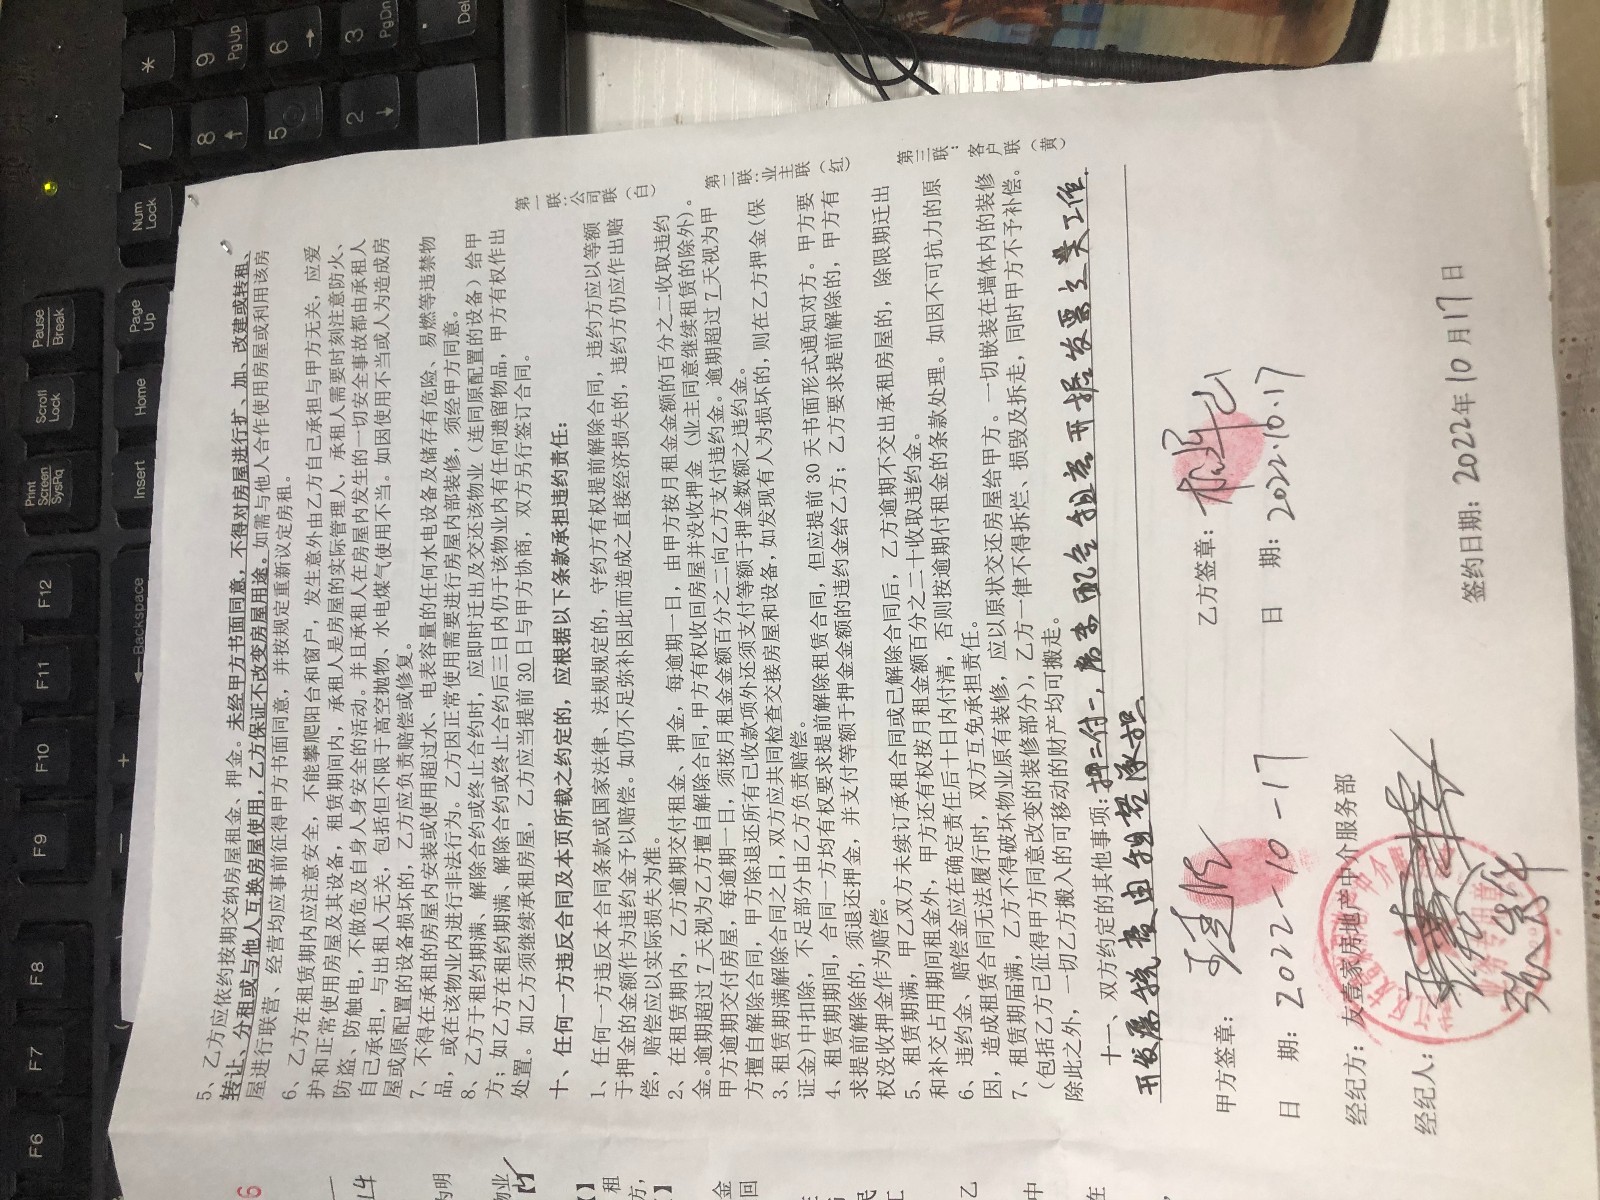 5、乙方应依约按期交纳房屋租金、押金。未经甲方书面同意，不得对房屋进行扩、加、改建或转租、
转让、分租或与他人互换房屋使用，乙方保证不改变房屋用途。如需与他人合作使用房屋或利用该房
屋进行联营、经营均应事前征得甲方书面同意，并按规定重新议定房租。
6、乙方在租赁期内应注意安全，不能攀爬阳台和窗户，发生意外由乙方自己承担与甲方无关，应爱
护和正常使用房屋及其设备，租赁期间内，承租人是房屋的实际管理人，承租人需要时刻注意防火、
防盗、防触电，不做危及自身人身安全的活动。并且承租人在房屋内发生的一切安全事故都由承租人
自己承担，与出租人无关，包括但不限于高空抛物、水电煤气使用不当。如因使用不当或人为造成房
屋或原配置的设备损坏的，乙方应负责赔偿或修复。
7、不得在承租的房屋内安装或使用超过水、电表容量的任何水电设备及储存有危险、易燃等违禁物
品，或在该物业内进行非法行为。乙方因正常使用需要进行房屋内部装修，须经甲方同意。
8、乙方于租约期满、解除合约或终止合约时，应即时迁出及交还该物业（连同原配置的设备）给甲
方；如乙方在租约期满、解除合约或终止合约后三日内仍于该物业内有任何遗留物品，甲方有权作出
处置。如乙方须继续承租房屋，乙方应当提前 30 日与甲方协商，双方另行签订合同。
十、任何一方违反合同及本页所载之约定的，应根据以下条款承担违约责任：
1、任何一方违反本合同条款或国家法律、法规规定的，守约方有权提前解除合同，违约方应以等额
于押金的金额作为违约金予以赔偿。如仍不足弥补因此而造成之直接经济损失的，违约方仍应作出赔
偿，赔偿应以实际损失为准。
2、在租赁期内，乙方逾期交付租金、押金，每逾期一日，由甲方按月租金金额的百分之二收取违约
金。逾期超过 7 天视为乙方擅自解除合同，甲方有权收回房屋并没收押金（业主同意继续租赁的除外）。
甲方逾期交付房屋，每逾期一日，须按月租金金额百分之二向乙方支付违约金。逾期超过 7 天视为甲
方擅自解除合同，甲方除退还所有已收款项外还须支付等额于押金数额之违约金。
3、租赁期满解除合同之日，双方应共同检查交接房屋和设备，如发现有人为损坏的，则在乙方押金（保
证金）中扣除，不足部分由乙方负责赔偿。
4、租赁期期间，合同一方均有权要求提前解除租赁合同，但应提前 30 天书面形式通知对方。甲方要
求提前解除的，须退还押金，并支付等额于押金金额的违约金给乙方；乙方要求提前解除的，甲方有
权没收押金作为赔偿。
5、租赁期满，甲乙双方未续订承租合同或已解除合同后，乙方逾期不交出承租房屋的，除限期迁出
和补交占用期间租金外，甲方还有权按月租金额百分之二十收取违约金。
6、违约金、赔偿金应在确定责任后十日内付清，否则按逾期付租金的条款处理。如因不可抗力的原
因，造成租赁合同无法履行时，双方互免承担责任。
7、租赁期届满，乙方不得破坏物业原有装修，应以原状交还房屋给甲方。一切嵌装在墙体内的装修
（包括乙方已征得甲方同意改变的装修部分），乙方一律不得拆烂、损毁及拆走，同时甲方不予补偿。
除此之外，一切乙方搬入的可移动的财产均可搬走。
十一、双方约定的其他事项：押二付一，房东配合租客开据发票之类工作.
开发票税费由租客承担
甲方签章：
乙方签章：
日 期：2022-10-17
日 期：2022.10.17
经纪方：友壹家房地产中介服务部
经纪人：
签约日期：2022年10月17日
第一联：公司联（白）
第二联：业主联（红）
第三联：客户联（黄）
F6
F7
F8
F9
F10
F11
F12
Print Screen SysRq
Scroll Lock
Pause Break
←Backspace
Insert
Home
Page Up
Num Lock
/
*
8
9 PgUp
5
6
2
3 PgDn
. Del